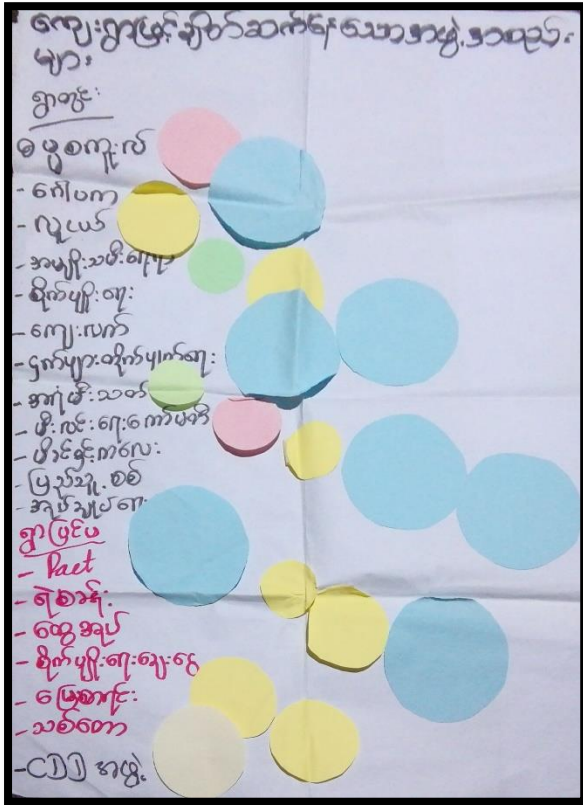 ကျေးရွာနှင့်ချိတ်ဆက်နေသောအဖွဲ့အစည်း
များ
ရွာတွင်း
- ဂေါပက
- လူငယ်
- အမျိုးသမီးရေးရာ
- စိုက်ပျိုးရေး
- ကျေးလက်
- ငှက်ဖျားတိုက်ဖျက်ရေး
- အရံမီးသတ်
- မီးလင်းရေးကော်မတီ
- မိခင်နှင့်ကလေး
- ပြည်သူ့စစ်
- အုပ်ချုပ်ရေး
ရွာပြင်ပ
- Pact
- ရဲစခန်း
- ထွေအုပ်
- စိုက်ပျိုးရေးချေးငွေ
- မြေစာရင်း
- သစ်တော
- CDD အဖွဲ့